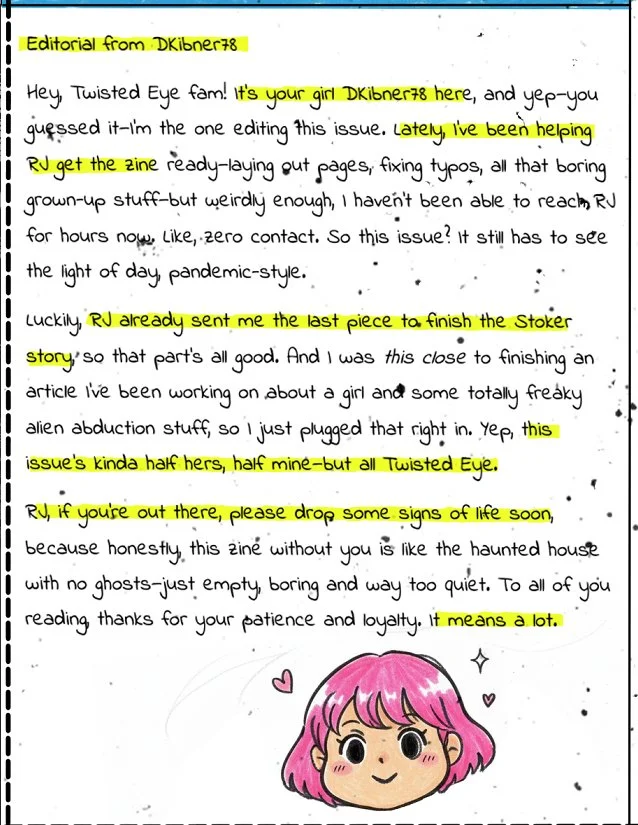 Editorial from DKibner78
Hey, Twisted Eye fam! It's your girl DKibner78 here, and yep-you
guessed it-I'm the one editing this issue. Lately, I've been helping
RJ get the zine ready-laying out pages, fixing typos, all that boring
grown-up stuff-but weirdly enough, I haven't been able to reach RJ
for hours now. Like, zero contact. So this issue? It still has to see
the light of day, pandemic-style.
Luckily, RJ already sent me the last piece to finish the Stoker
story, so that part's all good. And I was this close to finishing an
article I've been working on about a girl and some totally freaky
alien abduction stuff, so I just plugged that right in. Yep, this
issue's kinda half hers, half mine-but all Twisted Eye.
RJ, if you're out there, please drop some signs of life soon,
because honestly, this zine without you is like the haunted house
with no ghosts-just empty, boring and way too quiet. To all of you
reading, thanks for your patience and loyalty. It means a lot.